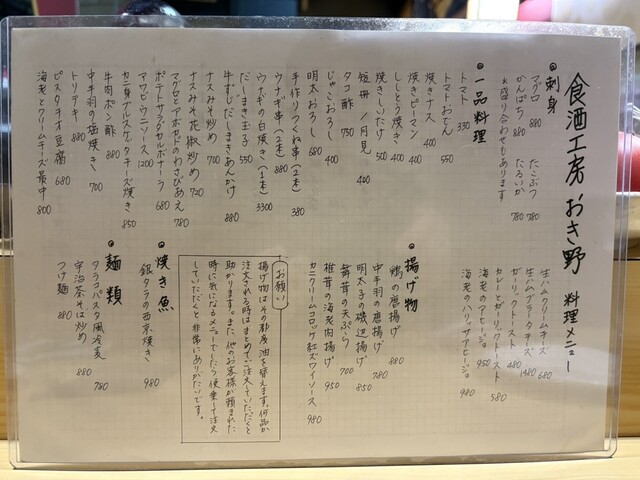 食酒工房 おき野 料理メニュー
◎刺身
マグロ 880
かんぱち 880
たこぶつ 780
たるいか 780
お盛り合わせもあります
◎一品料理
トマト 330
トマトおでん 550
焼きナス 400
焼きピーマン 400
ししとう焼き 400
焼きしいたけ 500
短冊/月見 400
タコ酢 750
じゃこおろし 400
明太おろし 680
手作りつくね串(2本) 380
ウナギ串(2本) 880
ウナギの白焼き(1本) 3300
だしまき玉子 550
牛すじだしまきあんかけ 880
ナスみそ炒め 700
ナスみそ花椒炒め 720
マグロとアボカドのわさびあえ 780
ポテトサラダカルボナーラ 680
アワビウニソース 1200
カニ身ブルスケッタチーズ焼き 850
牛肉ポン酢 880
中手羽の塩焼き 700
トリテキ 880
ピスタチオ豆腐 680
海老とクリームチーズ最中 800
生ハムクリームチーズ 680
生ハムブラータチーズ 1480
ガーリックトースト 480
カレーとガーリックトースト 580
海老のアヒージョ 950
海老のハリッサアヒージョ 980
◎揚げ物
鶏の唐揚げ 880
中手羽の唐揚げ 780
明太子の磯辺揚げ 850
舞茸の天ぷら 700
椎茸の海老肉揚げ 950
カニクリームコロッケ紅ズワイソース 980
お願い
揚げ物はその都度油を替えます。何品か
注文される時はまとめてご注文していただくと
助かります。また、他のお客様が頼まれた
時に気になるメニューでしたら便乗して注文
していただくと非常にありがたいです。
◎焼き魚
銀タラの西京焼き 980
◎麺類
タラコパスタ風冷麦 780
宇治茶そば炒め 880
つけ麺 880